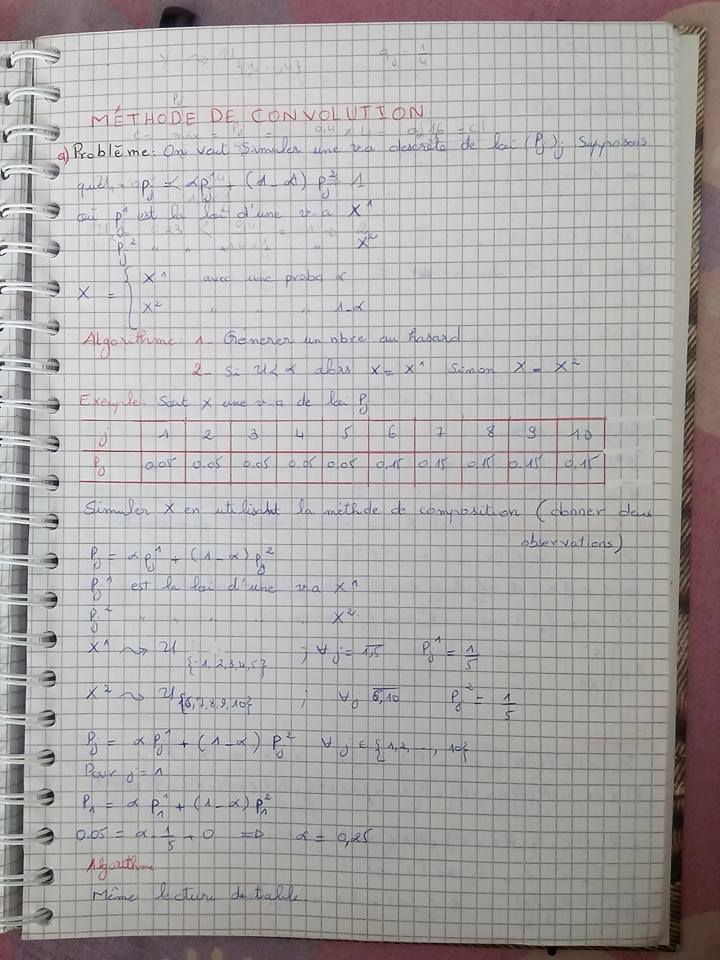 MÉTHODE DE CONVOLUTION
a) Problème: On veut Simuler une va descrète de loi (Pj)j Supposons
que Pj = αpj¹ + (1-α) pj²
où pj¹ est la loi d'une v-a X¹
pj² " " " " X²
X = { X¹ avec une proba α
X² " " " 1-α
Algorithme: 1- Génerer un nbre au hasard
2- Si U<α alors X = X¹ Sinon X = X²
Exemple: Soit X une v-a de loi Pj
j 1 2 3 4 5 6 7 8 9 10
Pj 0.05 0.05 0.05 0.05 0.05 0.15 0.15 0.15 0.15 0.15
Simuler X en utilisant la méthde de composition (donner deux
observations)
Pj = αpj¹ + (1-α)pj²
Pj¹ est la loi d'une v.a X¹
Pj² " " " " X²
X¹ ⤳ U{1,2,3,4,5} ; ∀j = 1,5 Pj¹ = 1/5
X² ⤳ U{6,7,8,9,10} ; ∀j 6,10 Pj² = 1/5
Pj = α Pj¹ + (1-α) Pj² ∀ j ∈ {1,2,...., 10}
Pour j = 1
P1 = α P1¹ + (1-α) P1²
0.05 = α 1/5 + 0 => α = 0,25
Algorithme
Même lecture de table.